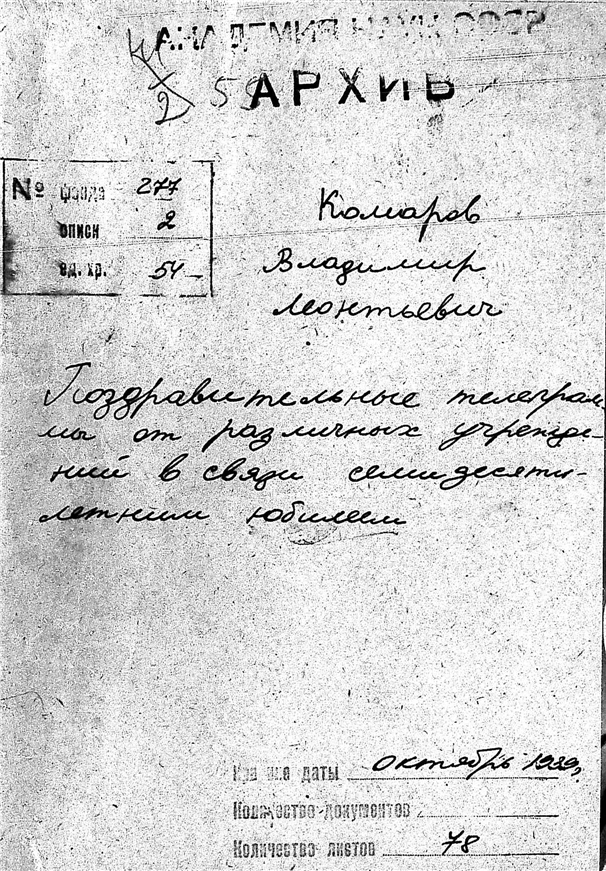 АКАДЕМИЯ НАУК СССР
АРХИВ
№ фонда 277
описи 2
ед. хр. 54
Комаров
Владимир
Леонтьевич
Поздравительные телеграм-
мы от различных учрежде-
ний в связи семидесяти-
летним юбилеем
Крайние даты октябрь 1939
Количество документов
Количество листов 78